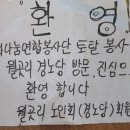 환영
나눔연합봉사단 토탈 봉사
월곶리 경노당 방문, 진심으
환영 합니다
월곶리 노인회(경노당)회원